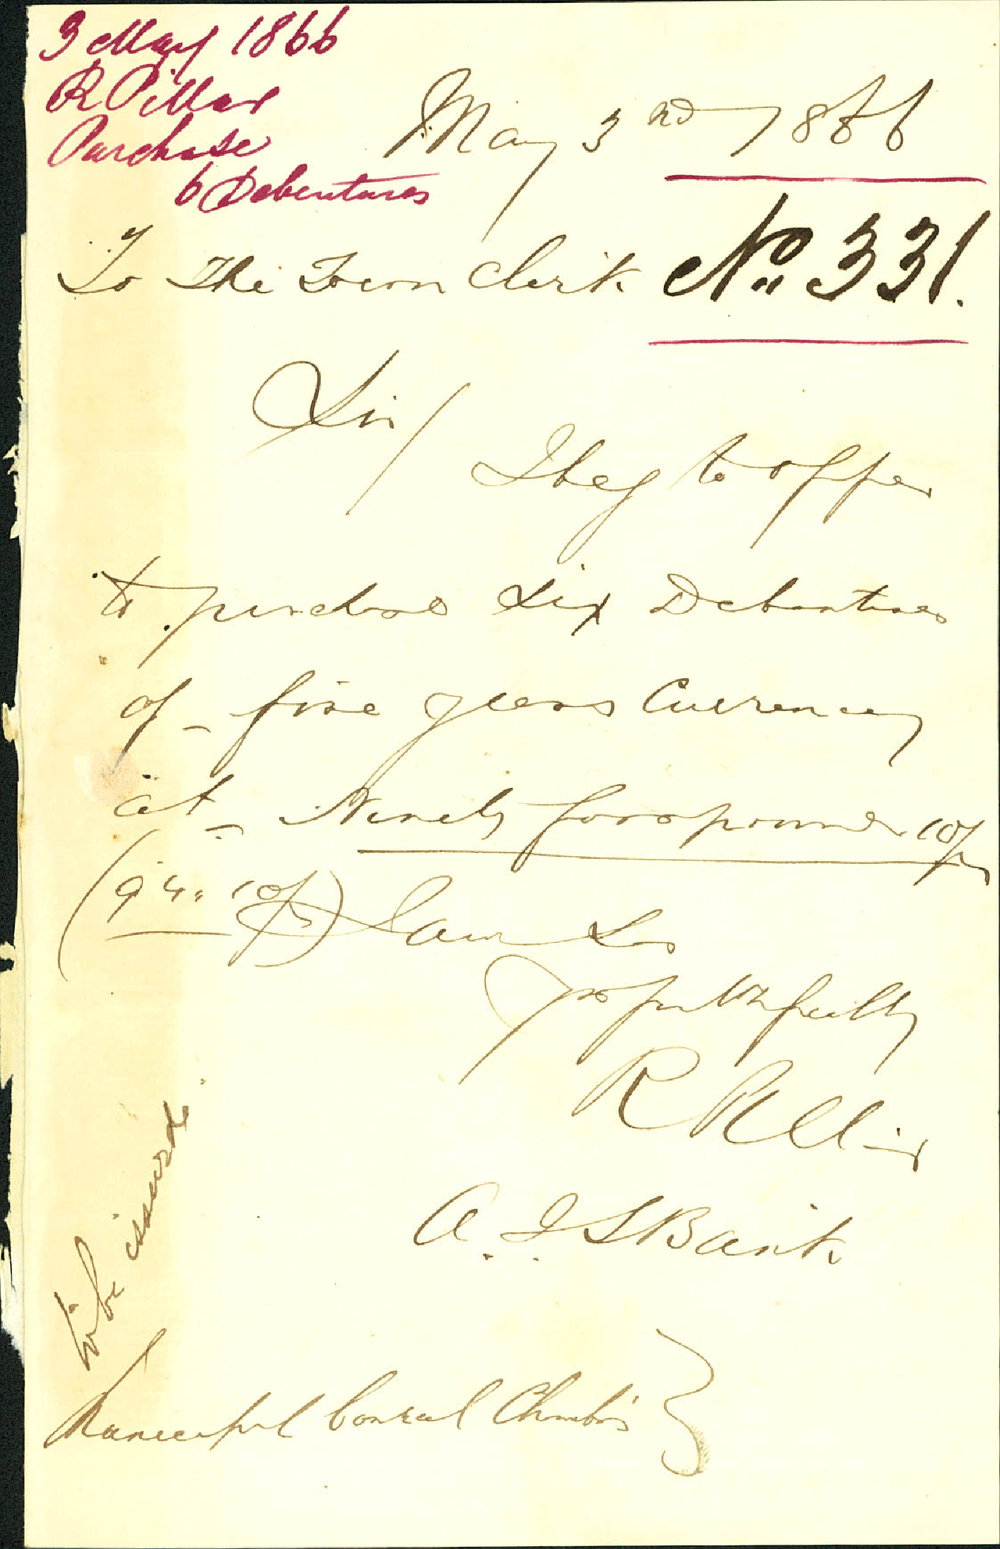 3 May 1866
R Pillar
Purchase
6 Debentures
May 3rd 1866
To The Town Clerk No. 331.
Sir/
I beg to offer
to purchase Six Debentures
of five years Currency
at Ninety four pounds 10/
(94" 10/) I am Sir
Yrs faithfully
R Pillar
A. J. S Bank
To be issued
Municipal Council Chambers